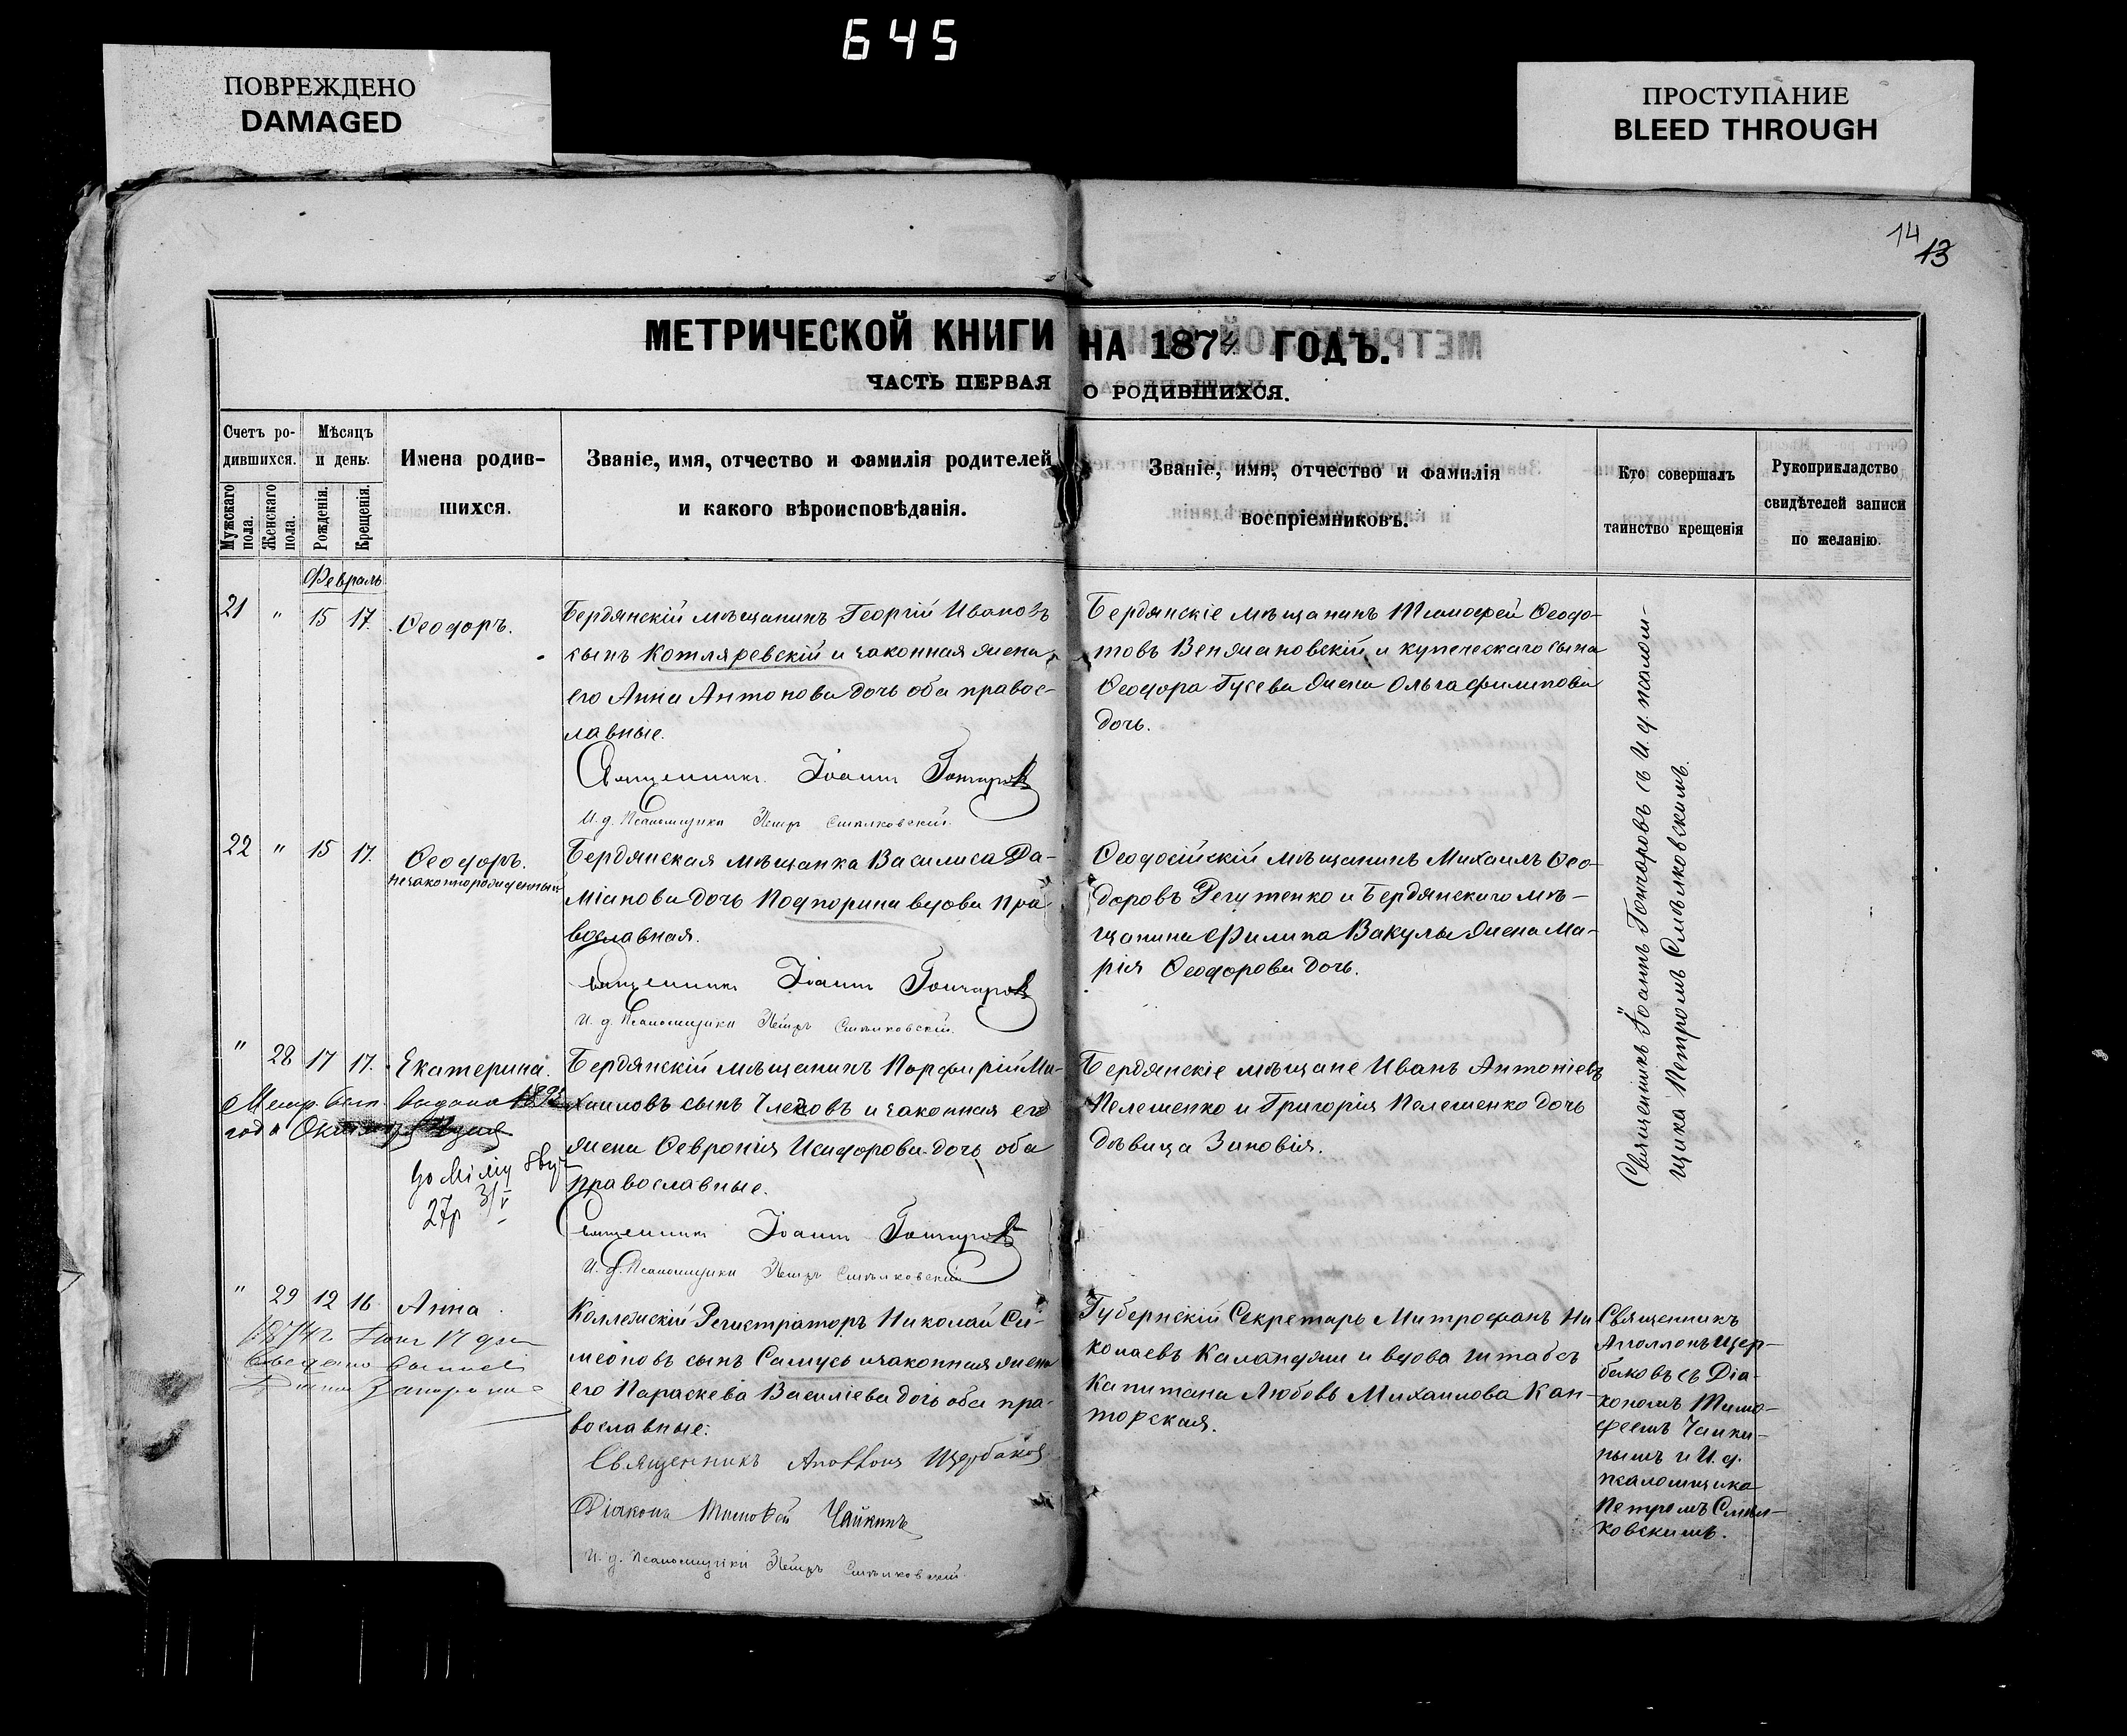 645
ПОВРЕЖДЕНО
DAMAGED
ПРОСТУПАНИЕ
BLEED THROUGH
14
13
МЕТРИЧЕСКОЙ КНИГИ НА 1874 ГОДЪ.
ЧАСТЬ ПЕРВАЯ О РОДИВШИХСЯ.
Счетъ ро-
дившихся.
Мужскаго
пола.
Женскаго
пола.
Мѣсяцъ
и день.
Рожденія.
Крещенія.
Имена родив-
шихся.
Званіе, имя, отчество и фамилія родителей
и какого вѣроисповѣданія.
Званіе, имя, отчество и фамилія
воспріемниковъ.
Кто совершалъ
таинство крещенія
Рукоприкладство
свидѣтелей записи
по желанію.
Февраль
21 " 15 17. Ѳеодоръ.
Бердянскій мѣщанинъ Георгій Ивановъ
сынъ Котляревскій и законная жена
его Анна Антонова дочь оба правос-
лавные.
Священникъ Іоаннъ Гончаровъ
И. д. Псаломщика Петръ Смѣлковскій.
Бердянскіе мѣщанинъ Тимофей Ѳеодо-
товъ Веняминовскій и купеческаго сына
Ѳеодора Гусева жена Ольга Филипова
дочь.
22 " 15 17. Ѳеодоръ.
незаконнорожденный
Бердянская мѣщанка Василиса Да-
міанова дочь Подпорина вдова пра-
вославная.
Священникъ Іоаннъ Гончаровъ
И. д. Псаломщика Петръ Смѣлковскій.
Ѳеодосійскій мѣщанинъ Михаилъ Ѳео-
доровъ Регутенко и Бердянскаго мѣ-
щанина Филипа Вакулы жена Ма-
рія Ѳеодорова дочь.
" 28 17 17. Екатерина.
Метр. вып. выдана
года
27р
Бердянскій мѣщанинъ Порфирій Ми-
хаиловъ сынъ Члековъ и законная его
жена Ѳевронія Исидорова дочь оба
православные.
Священникъ Іоаннъ Гончаровъ
И. д. Псаломщика Петръ Смѣлковскій
Бердянскіе мѣщане Иванъ Антоніевъ
Пелешенко и Григорія Пелешенко дочь
дѣвица Зиновія.
Священникъ Іоаннъ Гончаровъ съ И. д. псалом-
щика Петромъ Смѣлковскимъ.
" 29 12 16. Анна.
1874г
Коллежскій Регистраторъ Николай Си-
меоновъ сынъ Самусь и законная жена
его Параскева Василіева дочь оба пра-
вославные.
Священникъ Аполлонъ Щербаковъ
Діаконъ Тимофей Чайкинъ
И. д. Псаломщика Петръ Смѣлковскій.
Губернскій Секретарь Митрофанъ Ни
колаевъ Каландяш и вдова штабсъ
Капитана Любовь Михаилова Кан-
торская.
Священникъ
Аполлонъ Щер-
баковъ съ Діа-
кономъ Тимо-
феемъ Чайки-
нымъ и И. д.
псаломщика
Петромъ Смѣл-
ковскимъ.